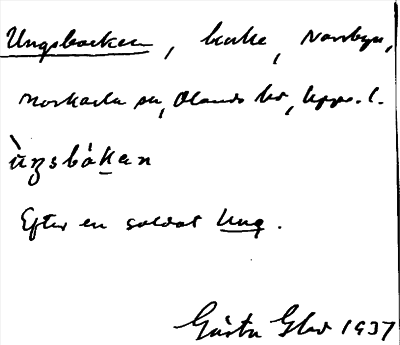 Ungsbacken, backe, Norrbyn,
Morkarla sn, Olands hd, Upps. l.
ùŋsbákan
Efter en soldat Ung.
Gösta 1937